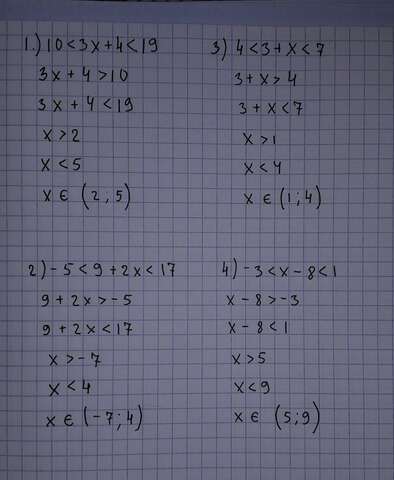 1.) 10<3x+4<19
3x+4>10
3x+4<19
x>2
x<5
x ∈ (2;5)
2) -5<9+2x<17
9+2x>-5
9+2x<17
x>-7
x<4
x ∈ (-7;4)
3) 4<3+x<7
3+x>4
3+x<7
x>1
x<4
x ∈ (1;4)
4) -3<x-8<1
x-8>-3
x-8<1
x>5
x<9
x ∈ (5;9)